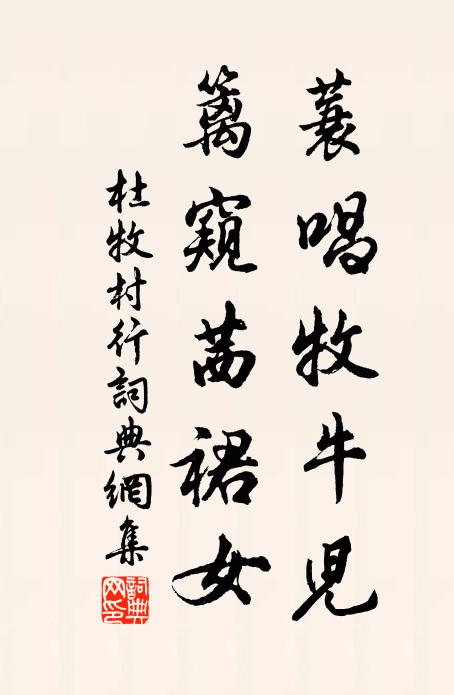 蓑唱牧牛兒
籬窺茜裙女
杜牧村行詞典網集
詞典網印